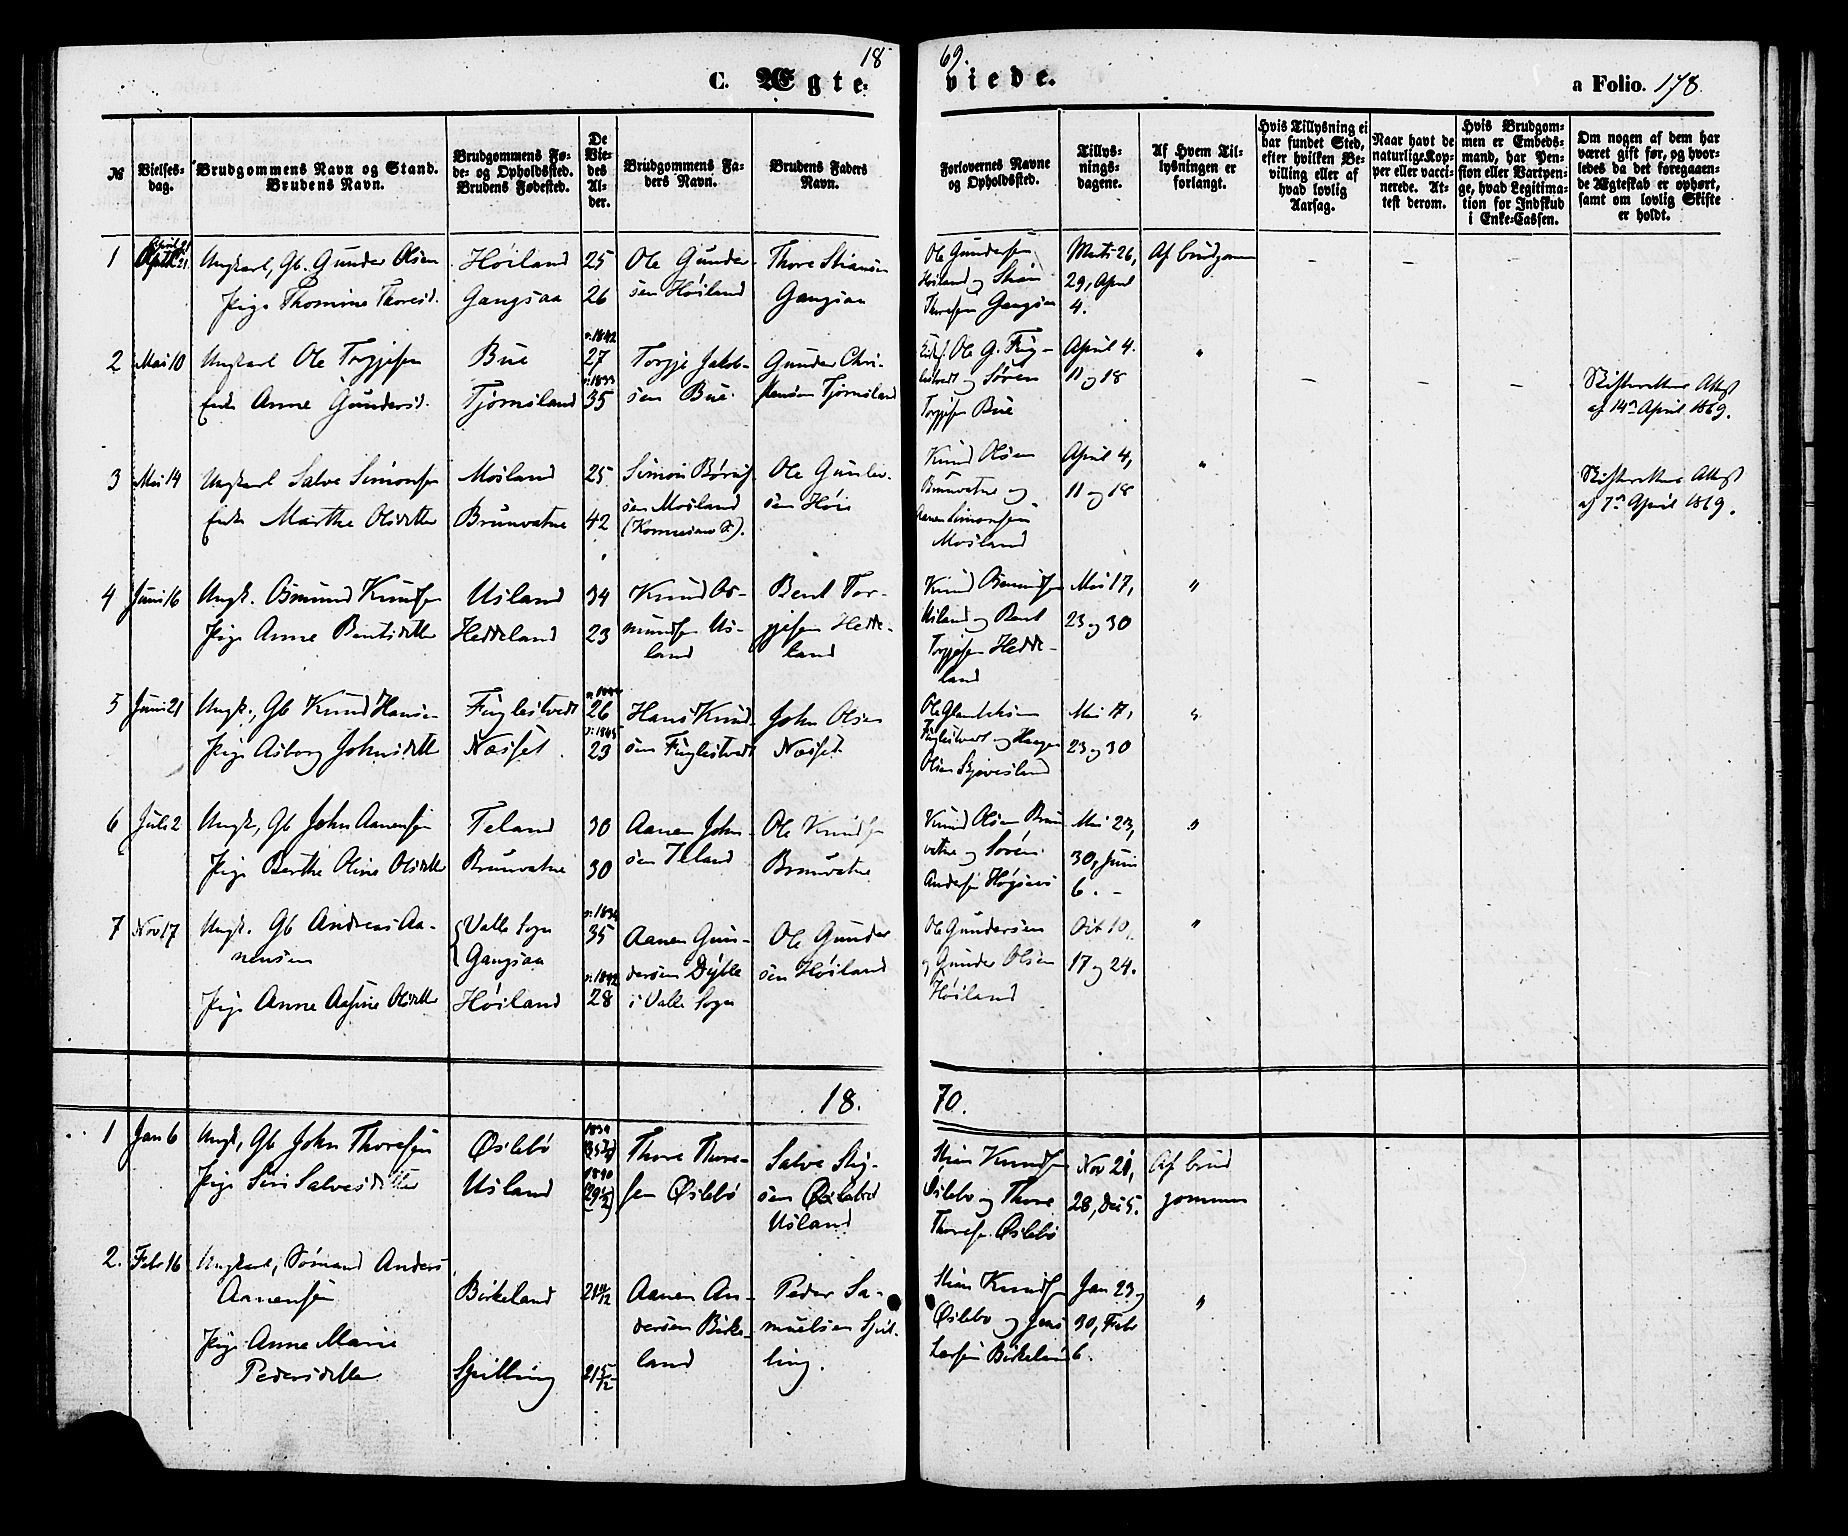 18 69.
C. Ægte- viede. a Folio. 178.
№
Vielses-
dag.
Brudgommens Navn og Stand.
Brudens Navn.
Brudgommens Fø-
de- og Opholdssted.
Brudens Fødested.
De
Vie-
des
Al-
der.
Brudgommens Fa-
ders Navn.
Brudens Faders
Navn.
Forlovernes Navne
og Opholdssted.
Tillys-
nings-
dagene.
Af Hvem Til-
lysningen er
forlangt.
Hvis Tillysning ei
har fundet Sted,
efter hvilken Be-
villing eller af
hvad lovlig
Aarsag.
Naar havt de
naturlige Kop-
per eller vacci-
nerede. At-
test derom.
Hvis Brudgom-
men er Embeds-
mand, har Pen-
sion eller Vartpen-
ge, hvad Legitima-
tion for Indskud
i Enke-Cassen.
Om nogen af dem har
været gift før, og hvor-
ledes da det foregaaen-
de Ægteskab er ophørt,
samt om lovlig Skifte
er holdt.
1 April 21 Ungkarl, Gb. Gunder Olsen
Pige Thomine Thoresd.
Høiland
Gangsaa
25
26
Ole Gunder-
sen Høiland
Thore Stiansen
Gangsaa
Ole Gundersen
Høiland og Stian
Thoresen Gangsaa
Marts 26,
29, April
4.
Af brudgom
2 Mai 10 Ungkarl Ole Torgjesen
Enke Anne Gundersd.
Bue
Tjomsland
f. 1842
27
f. 1833
35
Torgje Jakob-
sen Bue
Gunder Chri-
stensen Tjomsland
Ole G. Fug-
lestvedt og Søren
Torgjesen Bue
April 4.
11 og 18
"
Skifterettens Attest
af 14de April 1869.
3 Mai 14 Ungkarl Salve Simonsen
Enke Marthe Olsdatter
Mosland
Brunvatne
25
42
Simon Børuf-
sen Mosland
Ole Gunlei-
sen Høie
Knud Olsen
Brunvatne og
Aanen Simonsen
Mosland
April 4,
11 og 18
"
Skifterettens Attest
af 7de April 1869.
4 Juni 16 Ungk. Osmund Knudsen
Pige Anne Bentsdatter
Usland
Heddeland
34
23
Knud Os-
mundsen Us-
land
Bent Tor-
gjesen Hedde-
land
Knud Osmundsen
Usland og Bent
Torgjesen Hedde-
land
Mai 17,
23 og 30
"
5 Juni 21 Ungk., Gb Knud Hansen
Pige Asborg Johnsdatter
Fuglestvedt
Næsset
26
f. 1845
23
Hans Knud-
sen Fuglestvedt
John Olsen
Næsset
Fuglestvedt og Haagen
Olsen Skjævesland
Mai 17,
23 og 30
"
6 Juli 2 Ungk, Gb John Aanensen
Pige Berthe Oline Olsdatter
Teland
Brunvatne
30
30
Aanen John-
sen Teland
Ole Knudsen
Brunvatne
Knud Olsen Brun
vatne og Søren
Andersen Høgsaas
Mai 23,
30, Juni
6. -
"
7 Nov 17 Ungk. Gb Andreas Aa-
nensen
Pige Anne Aasine Olsdatter
Valle Sogn
Gangsaa
Høiland
f. 1834
35
f. 1842
28
Aanen Gun-
dersen Dyblie
i Valle Sogn
Ole Gunder
sen Høiland
Ole Gundersen
og Gunder Olsen
Høiland
Oct 10,
17 og 24.
"
18. 70.
1 Jan 6 Ungk, Gb John Thoresen
Pige Siri Salvesdatter
Øslebø
Usland
1834
1840
Thore Thore-
sen Øslebø
Salve Stig-
sen
Usland
Stian Knudsen
Øslebø og Thore
Thoresen Øslebø
Nov 21,
28, Dec 5.
Af brud
gommen
2. Febr 16 Ungkarl, Sømand Anders
Aanensen
Pige Anne Marie
Pedersdatter
Birkeland
Spilling
21 5/12
Aanen An-
dersen Birke-
land
Peder Sa-
muelsen Spil-
ling.
Stian Knudsen
Øslebø og Jens
Larsen Birkeland
Jan 23,
30, Febr
6.
"